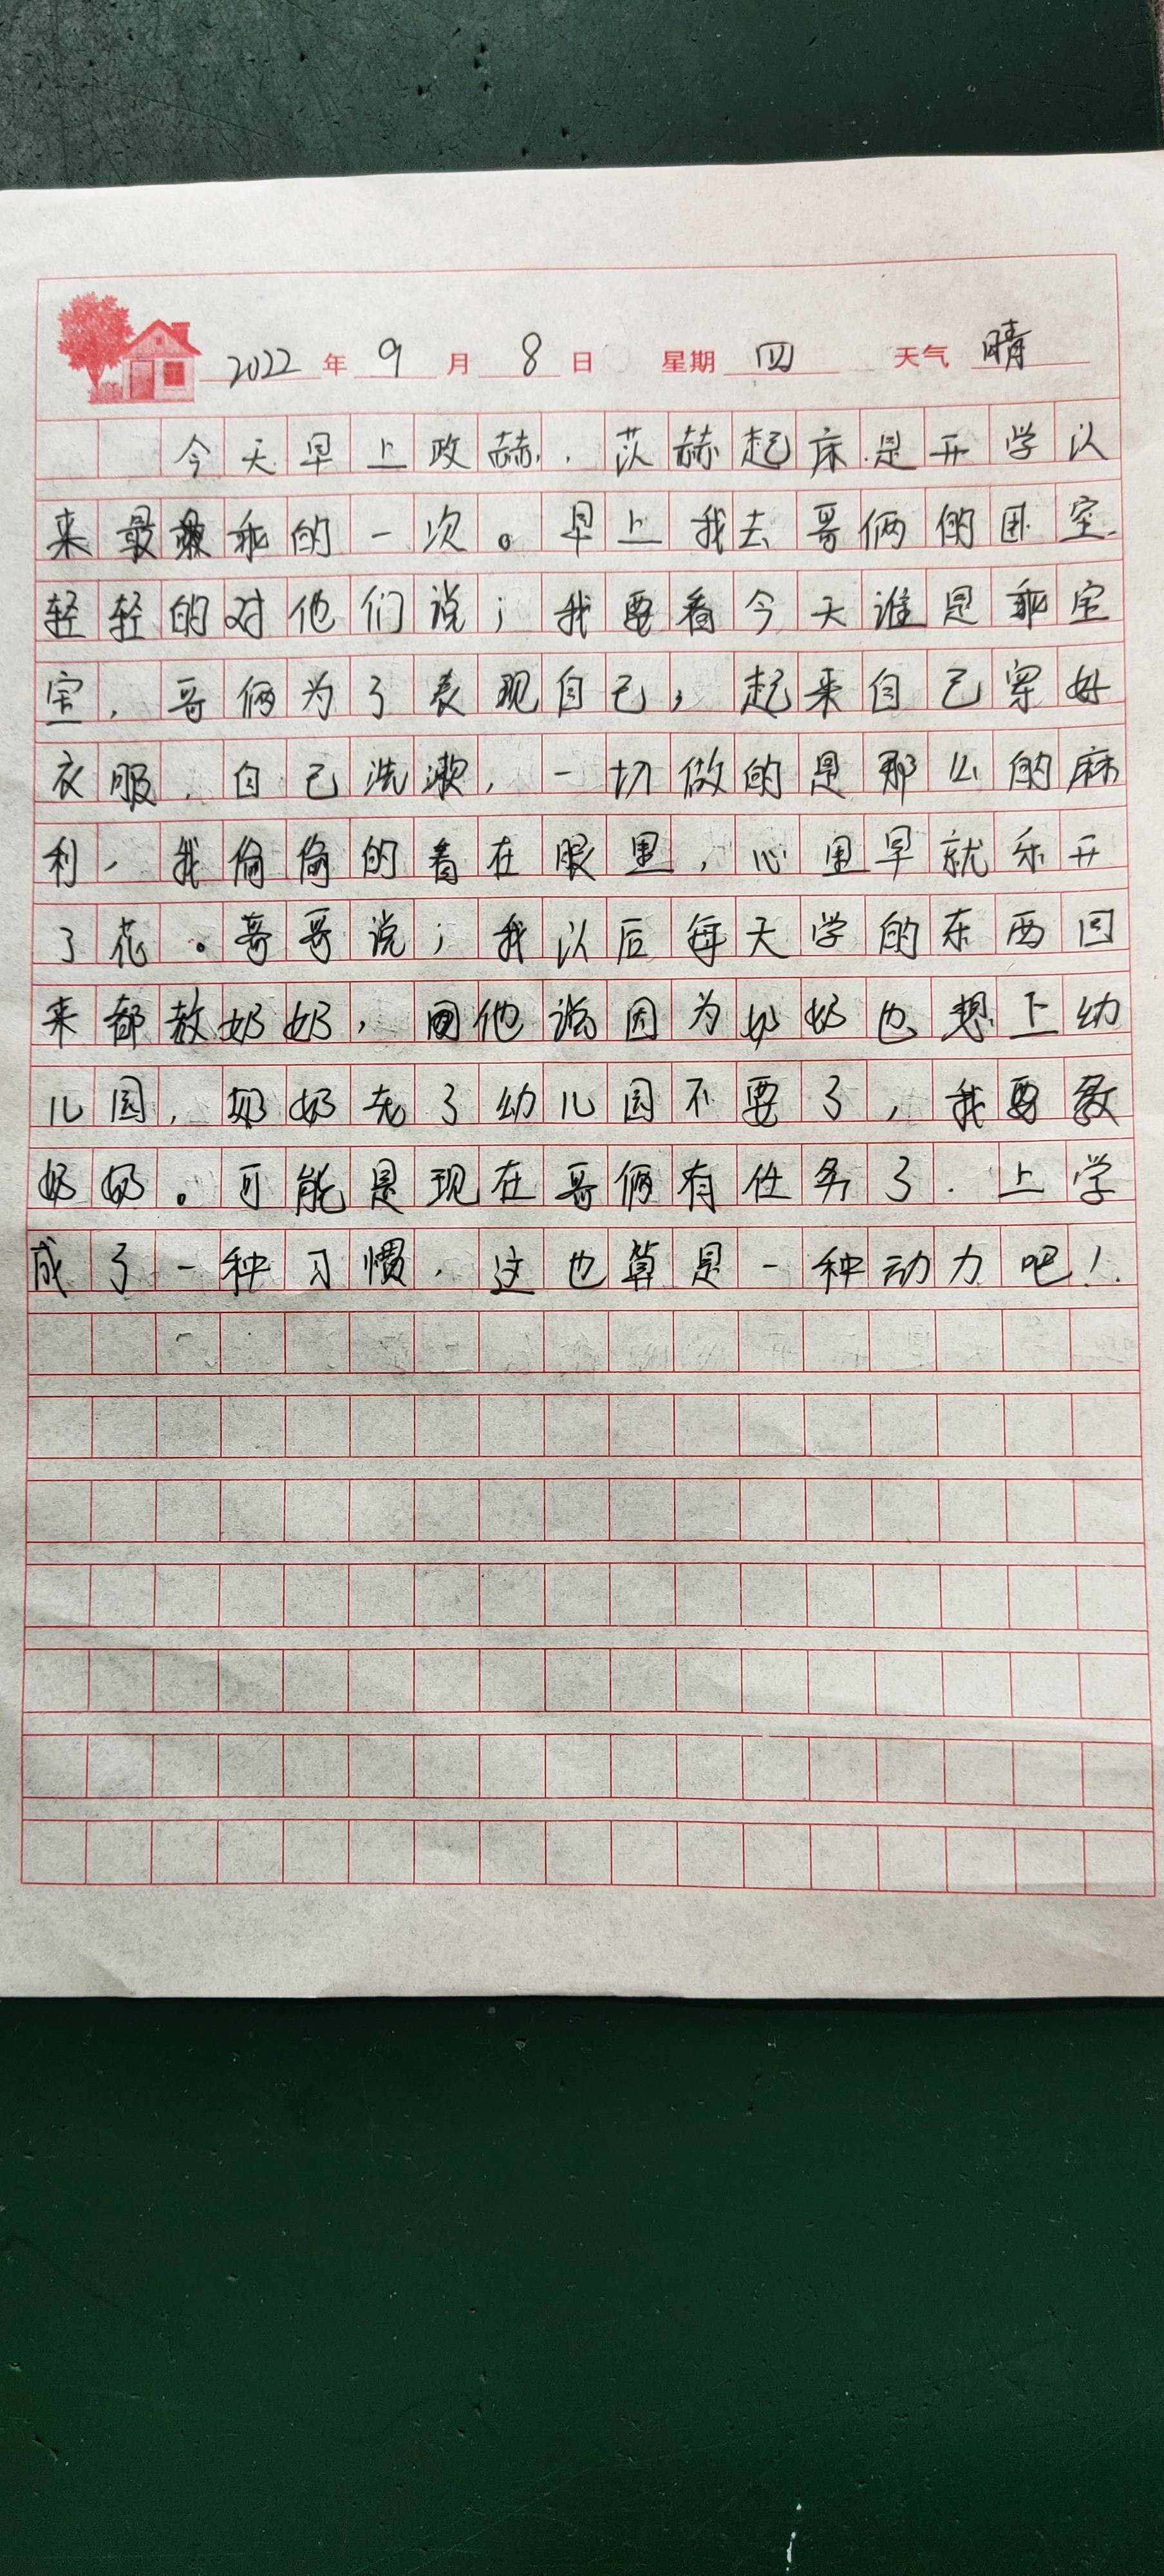 2022年9月8日 星期四 天气晴
今天早上政赫,莎赫起床是开学以
来最乖的一次。早上我去哥俩的卧室,
轻轻的对他们说;我要看今天谁是乖宝
宝,哥俩为了表现自己,起来自己穿好
衣服,自己洗漱,一切做的是那么的麻
利,我偷偷的看在眼里,心里早就乐开
了花。哥哥说;我以后每天学的东西回
来都教奶奶,他说因为奶奶也想上幼
儿园,奶奶老了幼儿园不要了,我要教
奶奶。可能是现在哥俩有任务了.上学
成了一种习惯,这也算是一种动力吧!